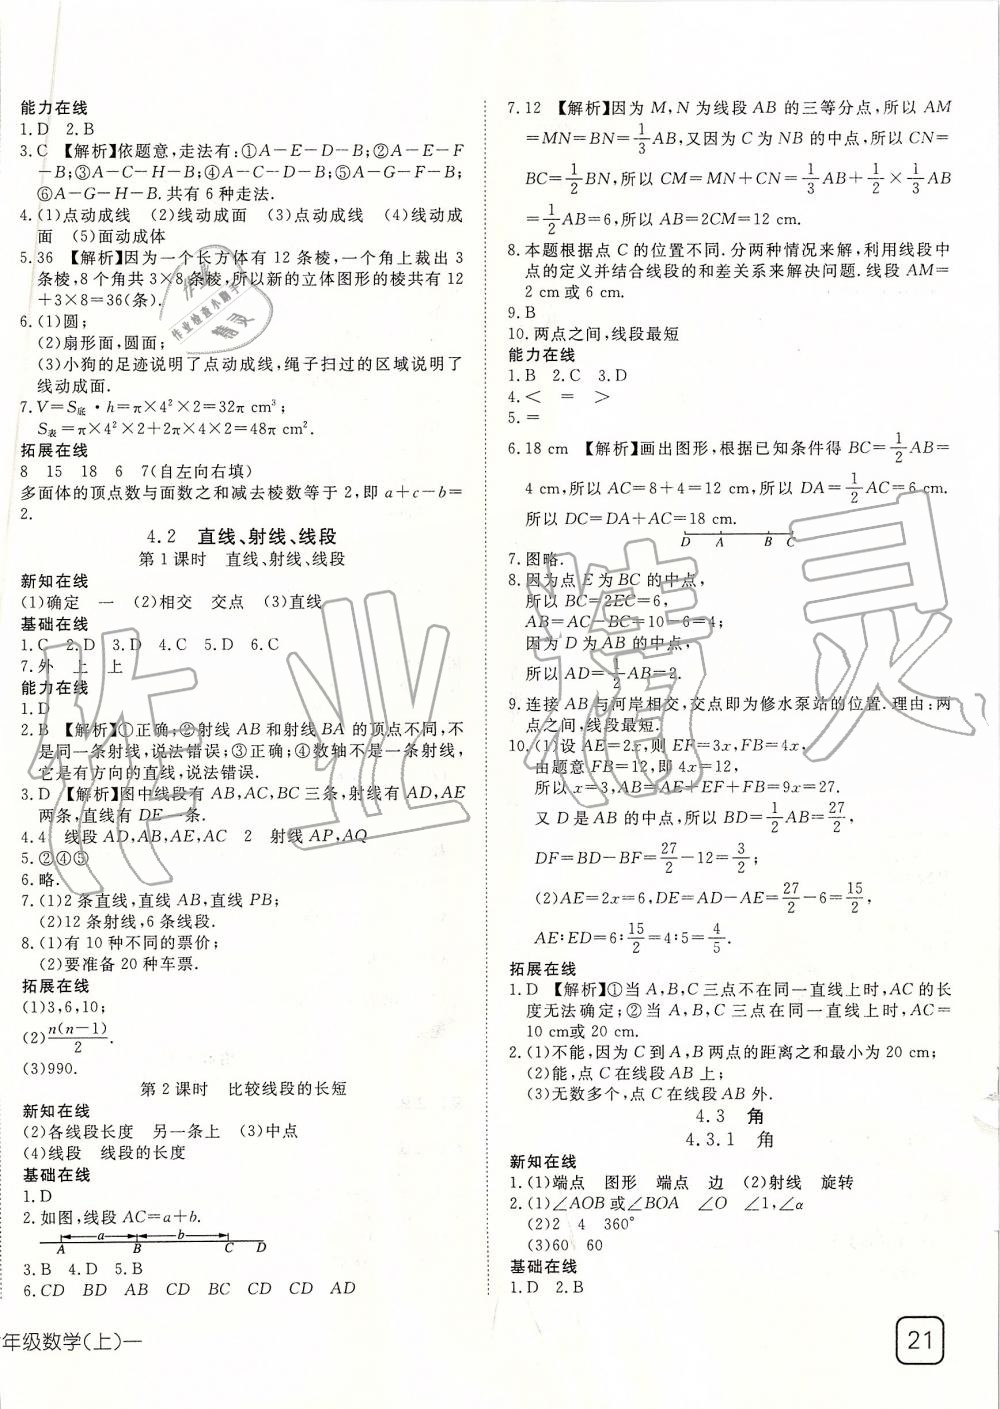 能力在线
1.D 2.B
3.C 【解析】依题意,走法有:①A-E-D-B;②A-E-F
-B;③A-C-H-B;④A-C-D-B;⑤A-G-F-B;
⑥A-G-H-B.共有6种走法.
4.(1)点动成线 (2)线动成面 (3)点动成线 (4)线动成
面 (5)面动成体
5.36 【解析】因为一个长方体有12条棱,一个角上裁出3
条棱,8个角共3×8条棱,所以新的立体图形的棱共有12
+3×8=36(条).
6.(1)圆;
(2)扇形面,圆面;
(3)小狗的足迹说明了点动成线,绳子扫过的区域说明了
线动成面.
7.V=S底·h=π×4²×2=32π cm³;
S表=π×4²×2+2π×4×2=48π cm².
拓展在线
8 15 18 6 7(自左向右填)
多面体的顶点数与面数之和减去棱数等于2,即a+c-b=
2.
4.2 直线、射线、线段
第1课时 直线、射线、线段
新知在线
(1)确定 一 (2)相交 交点 (3)直线
基础在线
1.C 2.D 3.D 4.C 5.D 6.C
7.外 上 上
能力在线
1.D
2.B 【解析】①正确;②射线AB和射线BA的顶点不同,不
是同一条射线,说法错误;③正确;④数轴不是一条射线,
它是有方向的直线,说法错误.
3.D 【解析】图中线段有AB,AC,BC三条,射线有AD,AE
两条,直线有DE一条.
4.4 线段AD,AB,AE,AC 2 射线AP,AQ
5.②④⑤
6.略.
7.(1)2条直线,直线AB,直线PB;
(2)12条射线,6条线段.
8.(1)有10种不同的票价;
(2)要准备20种车票.
拓展在线
(1)3,6,10;
(2)n(n-1)/2.
(3)990.
第2课时 比较线段的长短
新知在线
(2)各线段长度 另一条上 (3)中点
(4)线段 线段的长度
基础在线
1.D
2.如图,线段AC=a+b.
a b
A B C D
3.B 4.D 5.B
6.CD BD AB CD BC CD AD
年级数学(上)一
7.12 【解析】因为M,N为线段AB的三等分点,所以AM
=MN=BN=1/3AB,又因为C为NB的中点,所以CN=
BC=1/2BN,所以CM=MN+CN=1/3AB+1/2×1/3AB
=1/2AB=6,所以AB=2CM=12 cm.
8.本题根据点C的位置不同.分两种情况来解,利用线段中
点的定义并结合线段的和差关系来解决问题.线段AM=
2 cm或6 cm.
9.B
10.两点之间,线段最短
能力在线
1.B 2.C 3.D
4.< = >
5.=
6.18 cm 【解析】画出图形,根据已知条件得BC=1/2AB=
4 cm,所以AC=8+4=12 cm,所以DA=1/2AC=6 cm.
所以DC=DA+AC=18 cm.
D A B C
7.图略.
8.因为点E为BC的中点,
所以BC=2EC=6,
AB=AC-BC=10-6=4;
因为D为AB的中点,
所以AD=1/2AB=2.
9.连接AB与河岸相交,交点即为修水泵站的位置.理由:两
点之间,线段最短.
10.(1)设AE=2x,则EF=3x,FB=4x,
由题意FB=12,即4x=12,
所以x=3,AB=AE+EF+FB=9x=27.
又D是AB的中点,所以BD=1/2AB=27/2,
DF=BD-BF=27/2-12=3/2;
(2)AE=2x=6,DE=AD-AE=27/2-6=15/2,
AE:ED=6:15/2=4:5=4/5.
拓展在线
1.D 【解析】①当A,B,C三点不在同一直线上时,AC的长
度无法确定;②当A,B,C三点在同一直线上时,AC=
10 cm或20 cm.
2.(1)不能,因为C到A,B两点的距离之和最小为20 cm;
(2)能,点C在线段AB上;
(3)无数多个,点C在线段AB外.
4.3 角
4.3.1 角
新知在线
1.(1)端点 图形 端点 边 (2)射线 旋转
2.(1)∠AOB或∠BOA ∠O ∠1,∠α
(2)2 4 360°
(3)60 60
基础在线
1.D 2.B
21
作业精灵
作业检查小助手
精灵